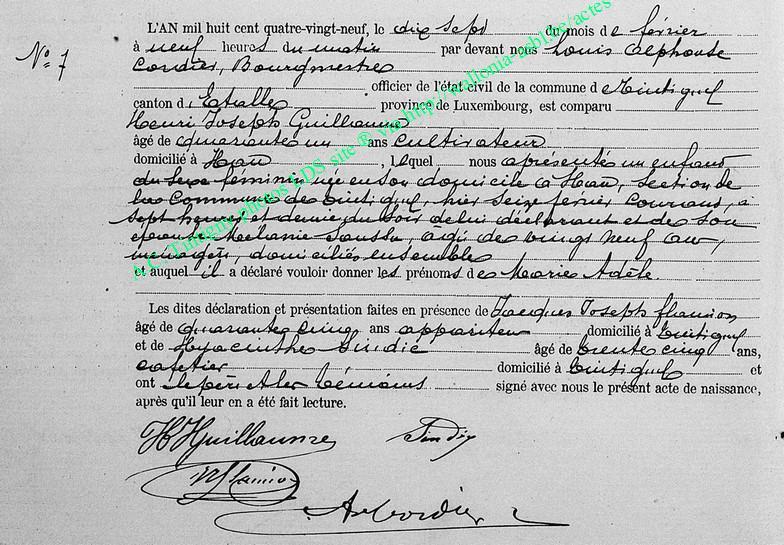 N° 7
L'AN mil huit cent quatre-vingt-neuf, le dix sept du mois de février
à neuf heures du matin par devant nous Louis Alphonse
Cordier, Bourgmestre
officier de l'état civil de la commune d e Tintigny
canton d' Etalle province de Luxembourg, est comparu
Henri Joseph Guillaume
âgé de quarante un ans cultivateur
domicilié à Han , lequel nous a présenté un enfant
du sexe féminin née en son domicile à Han, section de
la Commune de Tintigny, hier seize février courant, à
sept heures et demie du soir de lui déclarant et de son
épouse Mélanie , âgée de vingt neuf ans,
ménagère, domiciliés ensemble
et auquel il a déclaré vouloir donner les prénoms de Marie Adèle.
Les dites déclaration et présentation faites en présence de Jacques Joseph Flamion
âgé de quarante cinq ans appariteur domicilié à Tintigny
et de Hyacinthe Sindic âgé de trente cinq ans,
cafetier domicilié à Tintigny et
ont le père et les témoins signé avec nous le présent acte de naissance,
après qu'il leur en a été fait lecture.
HJ Guillaume Sindic
JJ Flamion
A Cordier
A.C. Tintigny photos LDS site ® via http://wallonia-asbl.be/actes